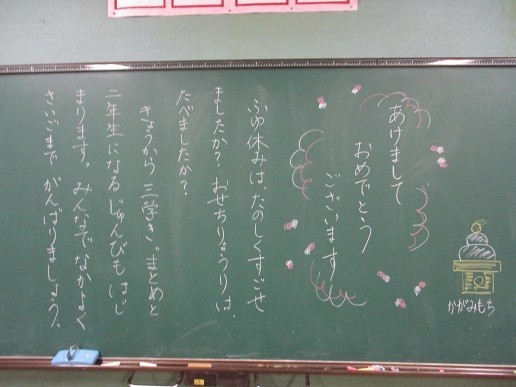 あけまして
おめでとう
ございます
かがみもち
ふゆ休みは、たのしくすごせ
ましたか？おせちりょうりは、
たべましたか？
きょうから三学き。まとめと
二年生になるじゅんびもはじ
まります。みんなでなかよく
さいごまでがんばりましょう。